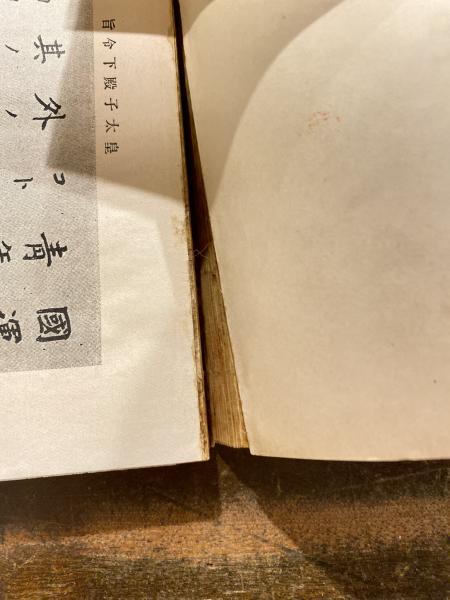 皇太子殿下令旨
國運
青年
コト
外ノ
其ノ